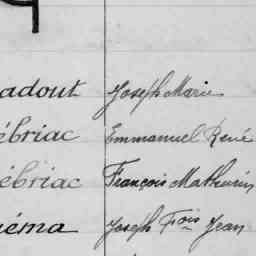 adout Joseph Marie
ébriac Emmanuel René
ébriac François Mathurin
éma Joseph Fois Jean